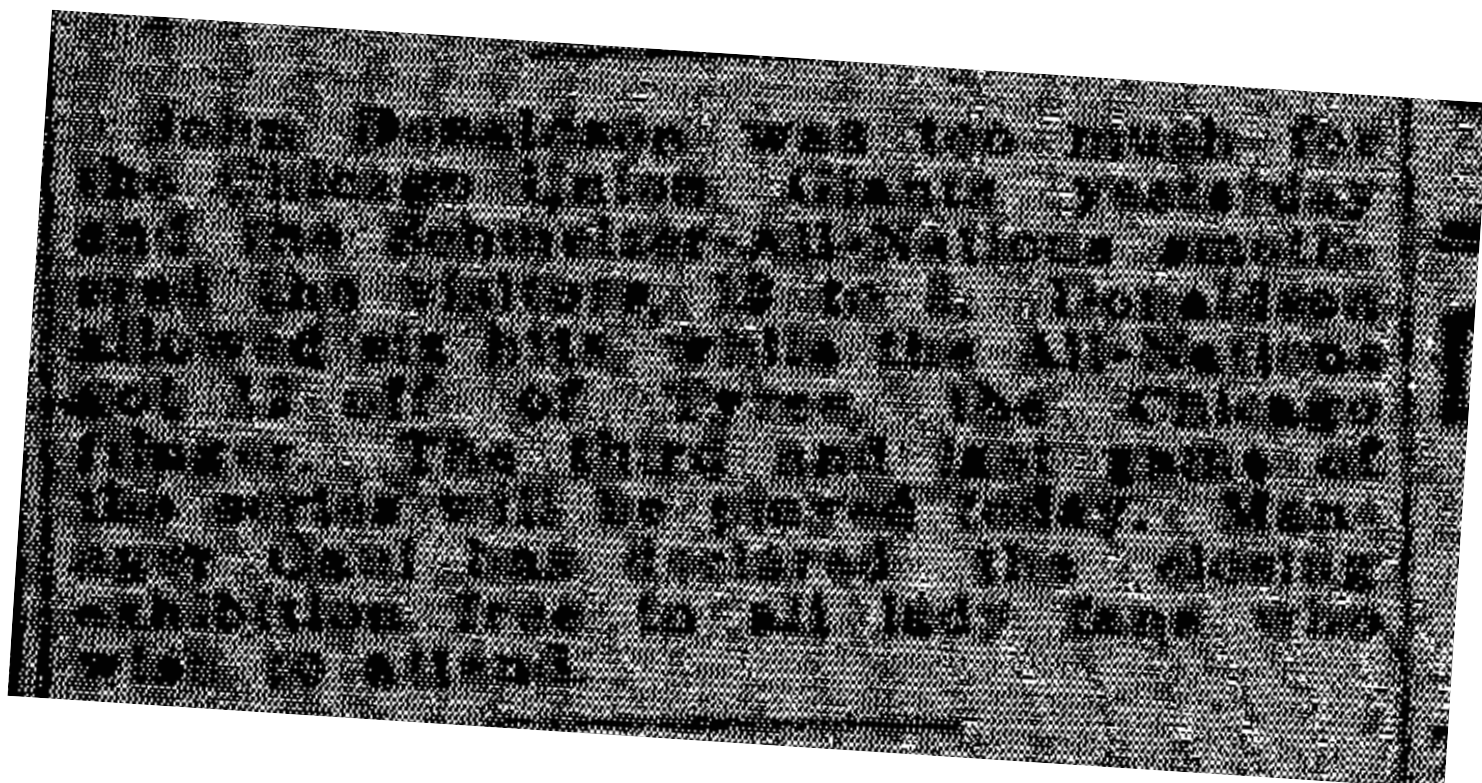 John Donaldson was too much for
the Chicago Union Giants yesterday
and the Schmelzer-All-Nations smoth-
ered the visitors, 12 to 2. Donaldson
allowed six hits while the All-Nations
got 12 off of Tyree, the Chicago
flinger. The third and last game of
the series will be played today. Man-
ager Gaul has declared the closing
exhibition free to all lady fans who
wish to attend.